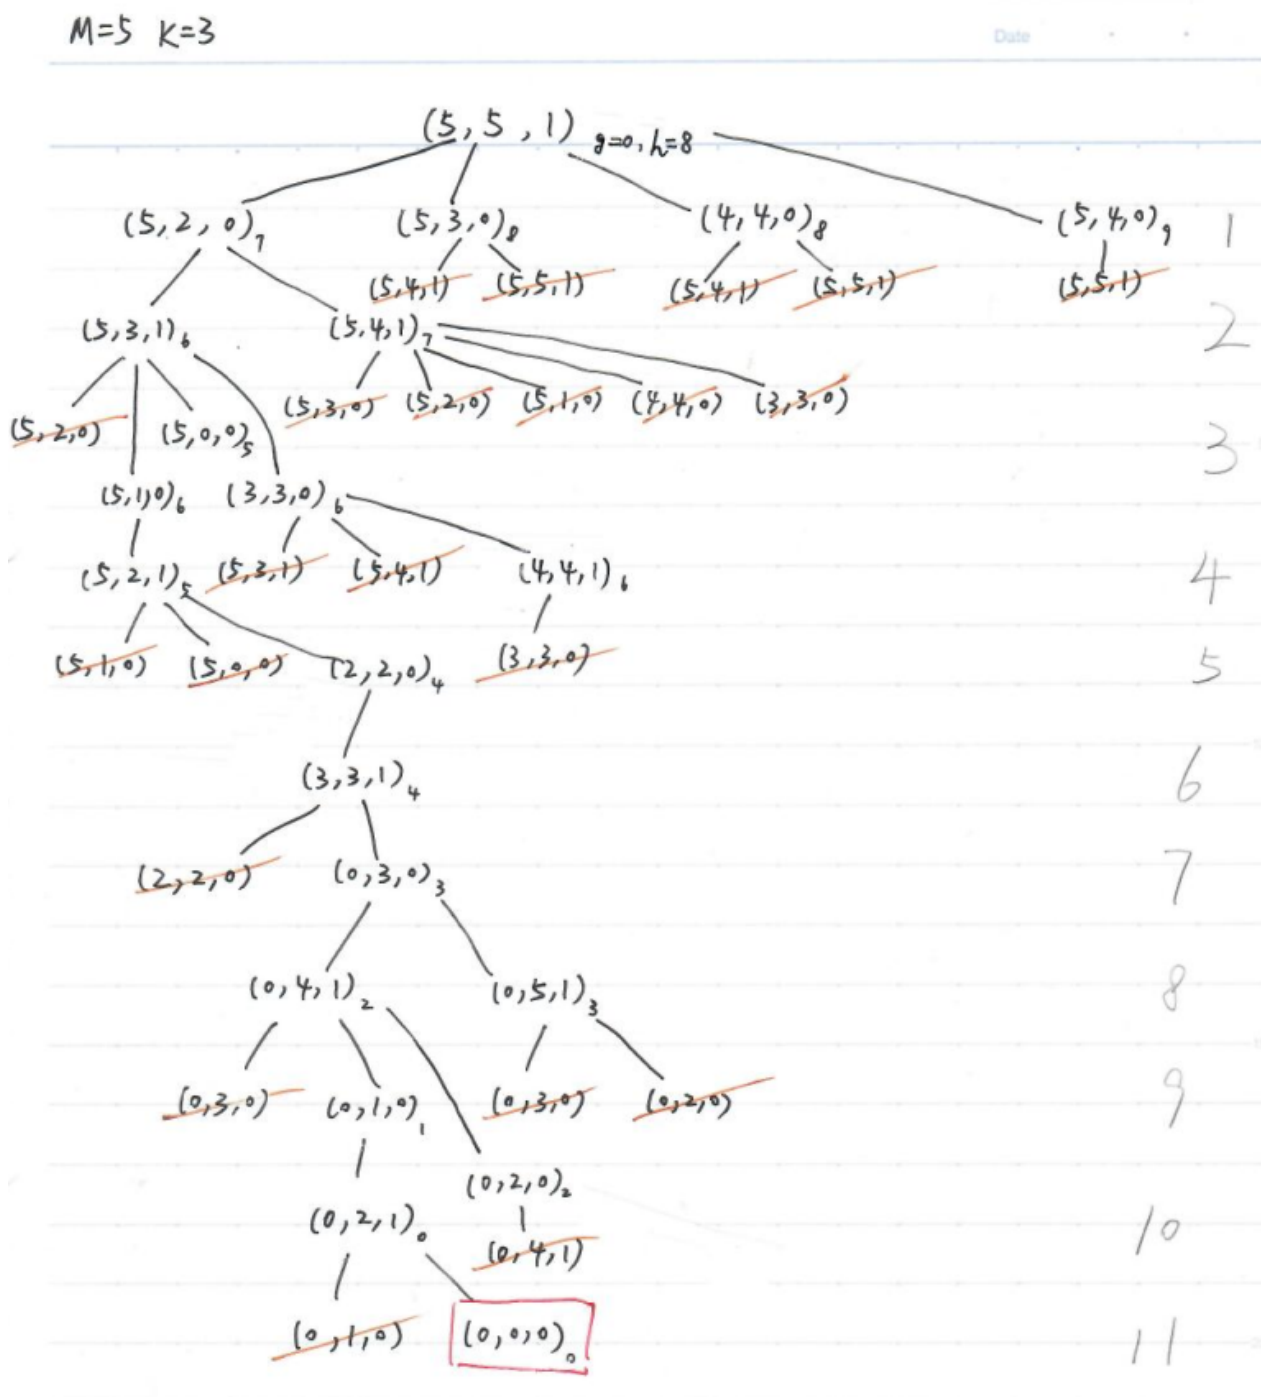 M=5 K=3
Date
(5,5,1) g=0,h=8
(5,2,0)7 (5,3,0)8 (4,4,0)8 (5,4,0)9 1
(5,4,1) (5,5,1) (5,4,1) (5,5,1) (5,5,1)
(5,3,1)6 (5,4,1)7 2
(5,3,0) (5,2,0) (5,1,0) (4,4,0) (3,3,0)
(5,2,0) (5,0,0)5 3
(5,1,0)6 (3,3,0)6
(5,2,1)5 (5,3,1) (5,4,1) (4,4,1)6 4
(5,1,0) (5,0,0) (2,2,0)4 (3,3,0) 5
(3,3,1)4 6
(2,2,0) (0,3,0)3 7
(0,4,1)2 (0,5,1)3 8
(0,3,0) (0,1,0)1 (0,3,0) (0,2,0) 9
(0,2,0)2
(0,2,1)0 10
(0,4,1)
(0,1,0) (0,0,0)0 11